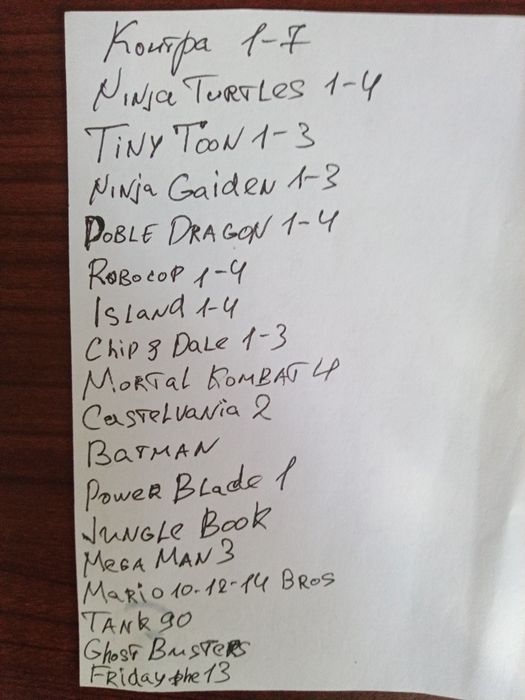 Контра 1-7
Ninja Turtles 1-4
Tiny Toon 1-3
Ninja Gaiden 1-3
Doble Dragon 1-4
Robocop 1-4
Island 1-4
Chip & Dale 1-3
Mortal Kombat 4
Castelvania 2
Batman
Power Blade 1
Jungle Book
Mega Man 3
Mario 10-12-14 Bros
Tank 90
Ghost Busters
Friday the 13